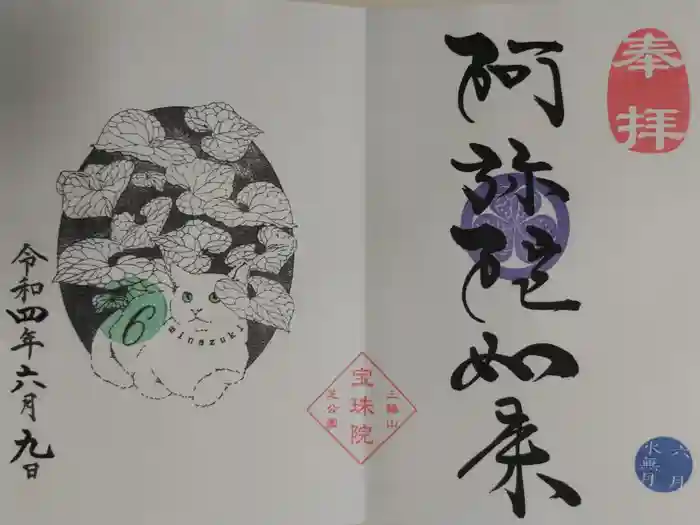 奉拝
阿弥陀如来
六月
水無月
三縁山
宝珠院
芝公園
6
minazuki
令和四年六月九日